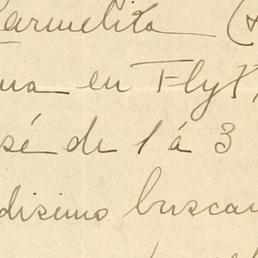 Carmelita (
na en Fly
sé de 1 á 3
disimo buscar